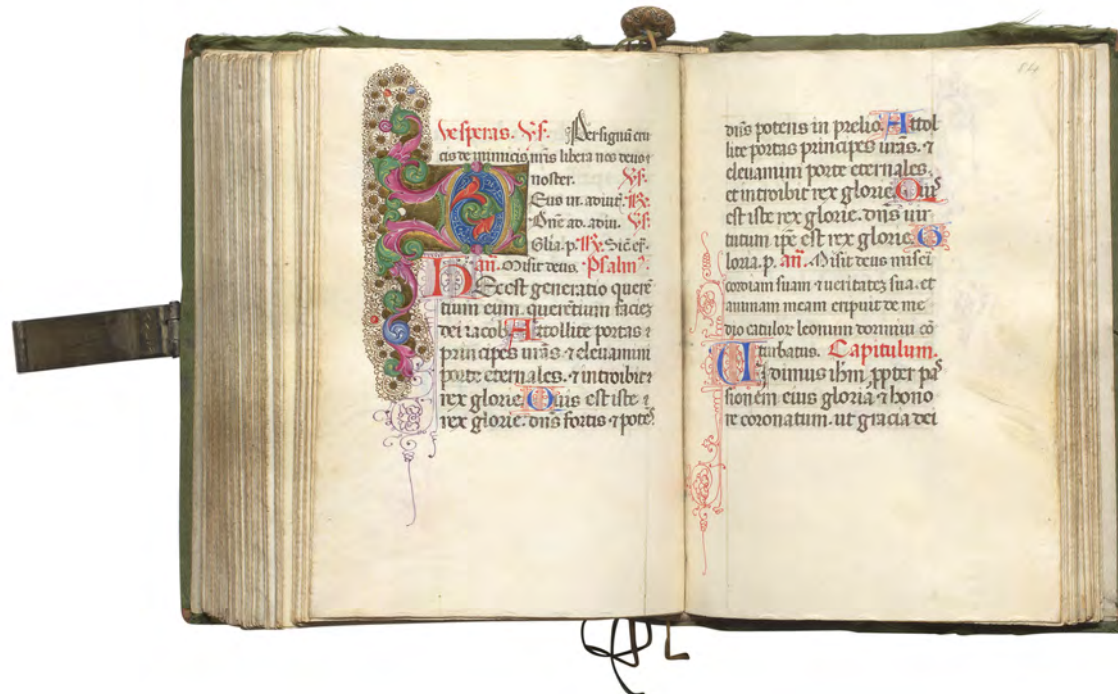 vesperas. Vſ. Per signū cru
cis de inimicis n̄ris libera nos deus
noster. Vſ.
Deus in. adiut̄. R̃.
Dn̄e ad. adiu. Vſ.
Gl̄ia. p. R̃. Sic̄ er̄.
an̄. Misit deus. Psalmꝰ.
Hec est generatio querē
tium eum. querētium faciez
dei iacob. Attollite portas
principes ur̄as. ⁊ eleuamini
porte eternales. ⁊ introibit
rex glorie. Quis est iste
rex glorie. dn̄s fortis ⁊ potēs
84
dn̄s potens in prelio. Attol
lite portas principes ur̄as. ⁊
eleuamini porte eternales.
et introibit rex glorie. Quis
est iste rex glorie. dn̄s uir
tutum ip̄e est rex glorie. G
loria. p. an̄. Misit deus misei
cordiam suam ⁊ ueritatez sua. et
animam meam eripuit de me
dio catulor leonum dormiui cō
turbatus. Capitulum.
Uidimus ih̄m ꝓpter pas
sionem eius gloria ⁊ hono
re coronatum. ut gracia dei